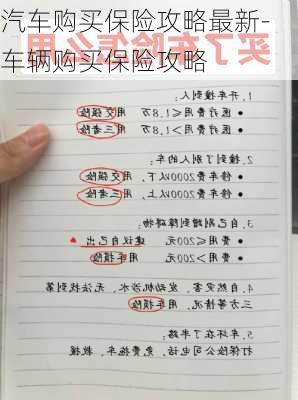 汽车购买保险攻略最新-
车辆购买保险攻略
买了车险怎么用
1.开车撞到人
医疗费用≤1.8万 用交强险
医疗费用>1.8万 用三者险
2.撞到了别人的车:
修车费用2000以下,用交强险
修车费用2000以上,用三者险
3.自己剐蹭到障碍物:
费用≤200元 建议自己出
费用>200元 用车损险
4.自然灾害、发动机涉水、无法找到第
三方等情况、用车损险
5.车坏在了半路:
打保险公司电话、免费拖车、救援